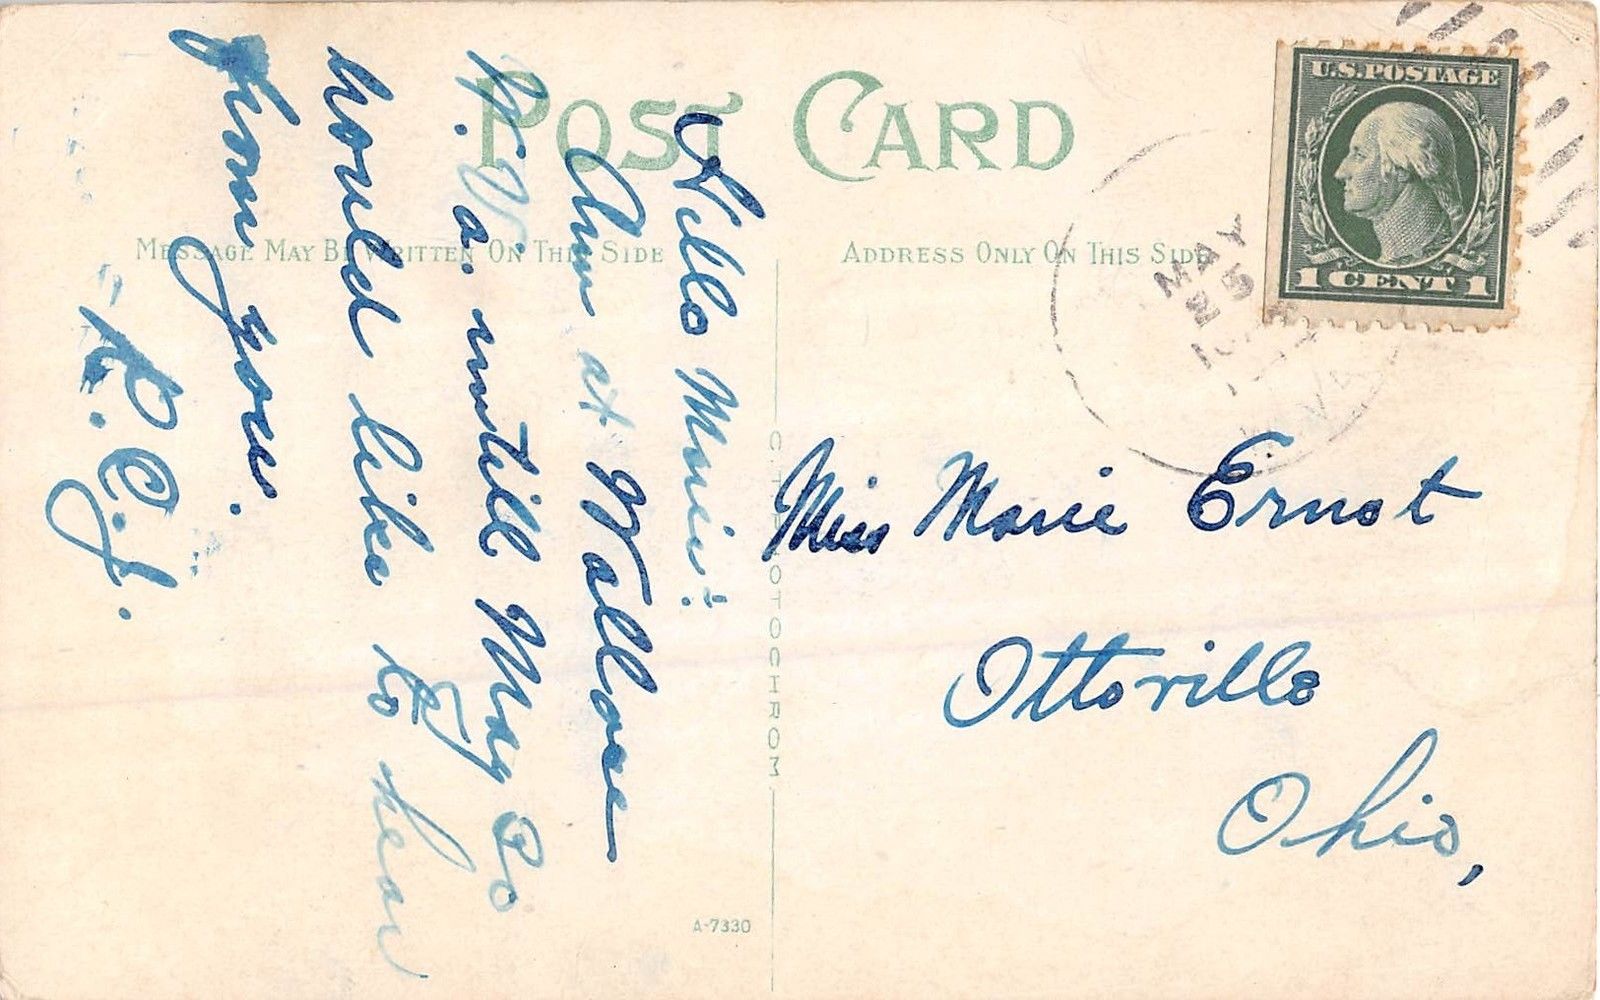 POST CARD
MESSAGE MAY BE WRITTEN ON THIS SIDE
ADDRESS ONLY ON THIS SIDE
U.S. POSTAGE
1 CENT 1
MAY
Hello Marie:
Am at Wallace
W. Va. untill May 30
hould like to hear
from you.
- R. C. J.
Miss Marie Ernst
Ottoville
Ohio,
C.T. PHOTOCHROM
A-7330